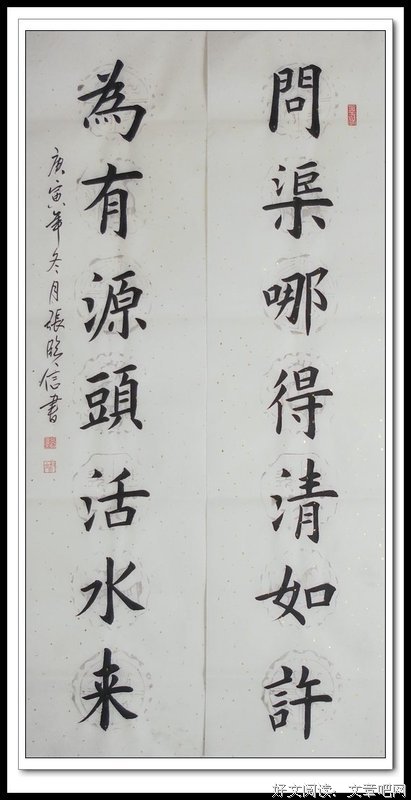 問渠哪得清如許
為有源頭活水来
庚寅年冬月張晧信書
好文阅读，文章吧网